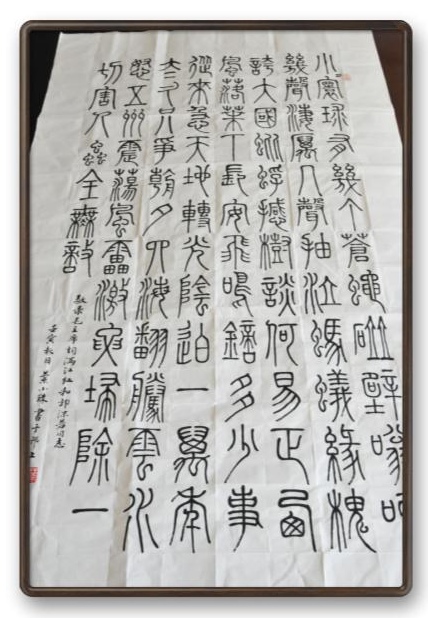 小寰球有幾个蒼蠅碰壁嗡叫
幾聲淒厲几聲抽泣螞蟻緣槐
誇大國蚍蜉撼樹談何易正西
風落葉丅長安飛鳴鏑多少事
從來急天地轉光陰迫一萬年
太久只爭朝夕四海翻騰雲水
怒五州震蕩風雷激要掃除一
切害人蟲全無敵
敬录毛主席词满江红和郭沫若同志
壬寅秋月黄小书于